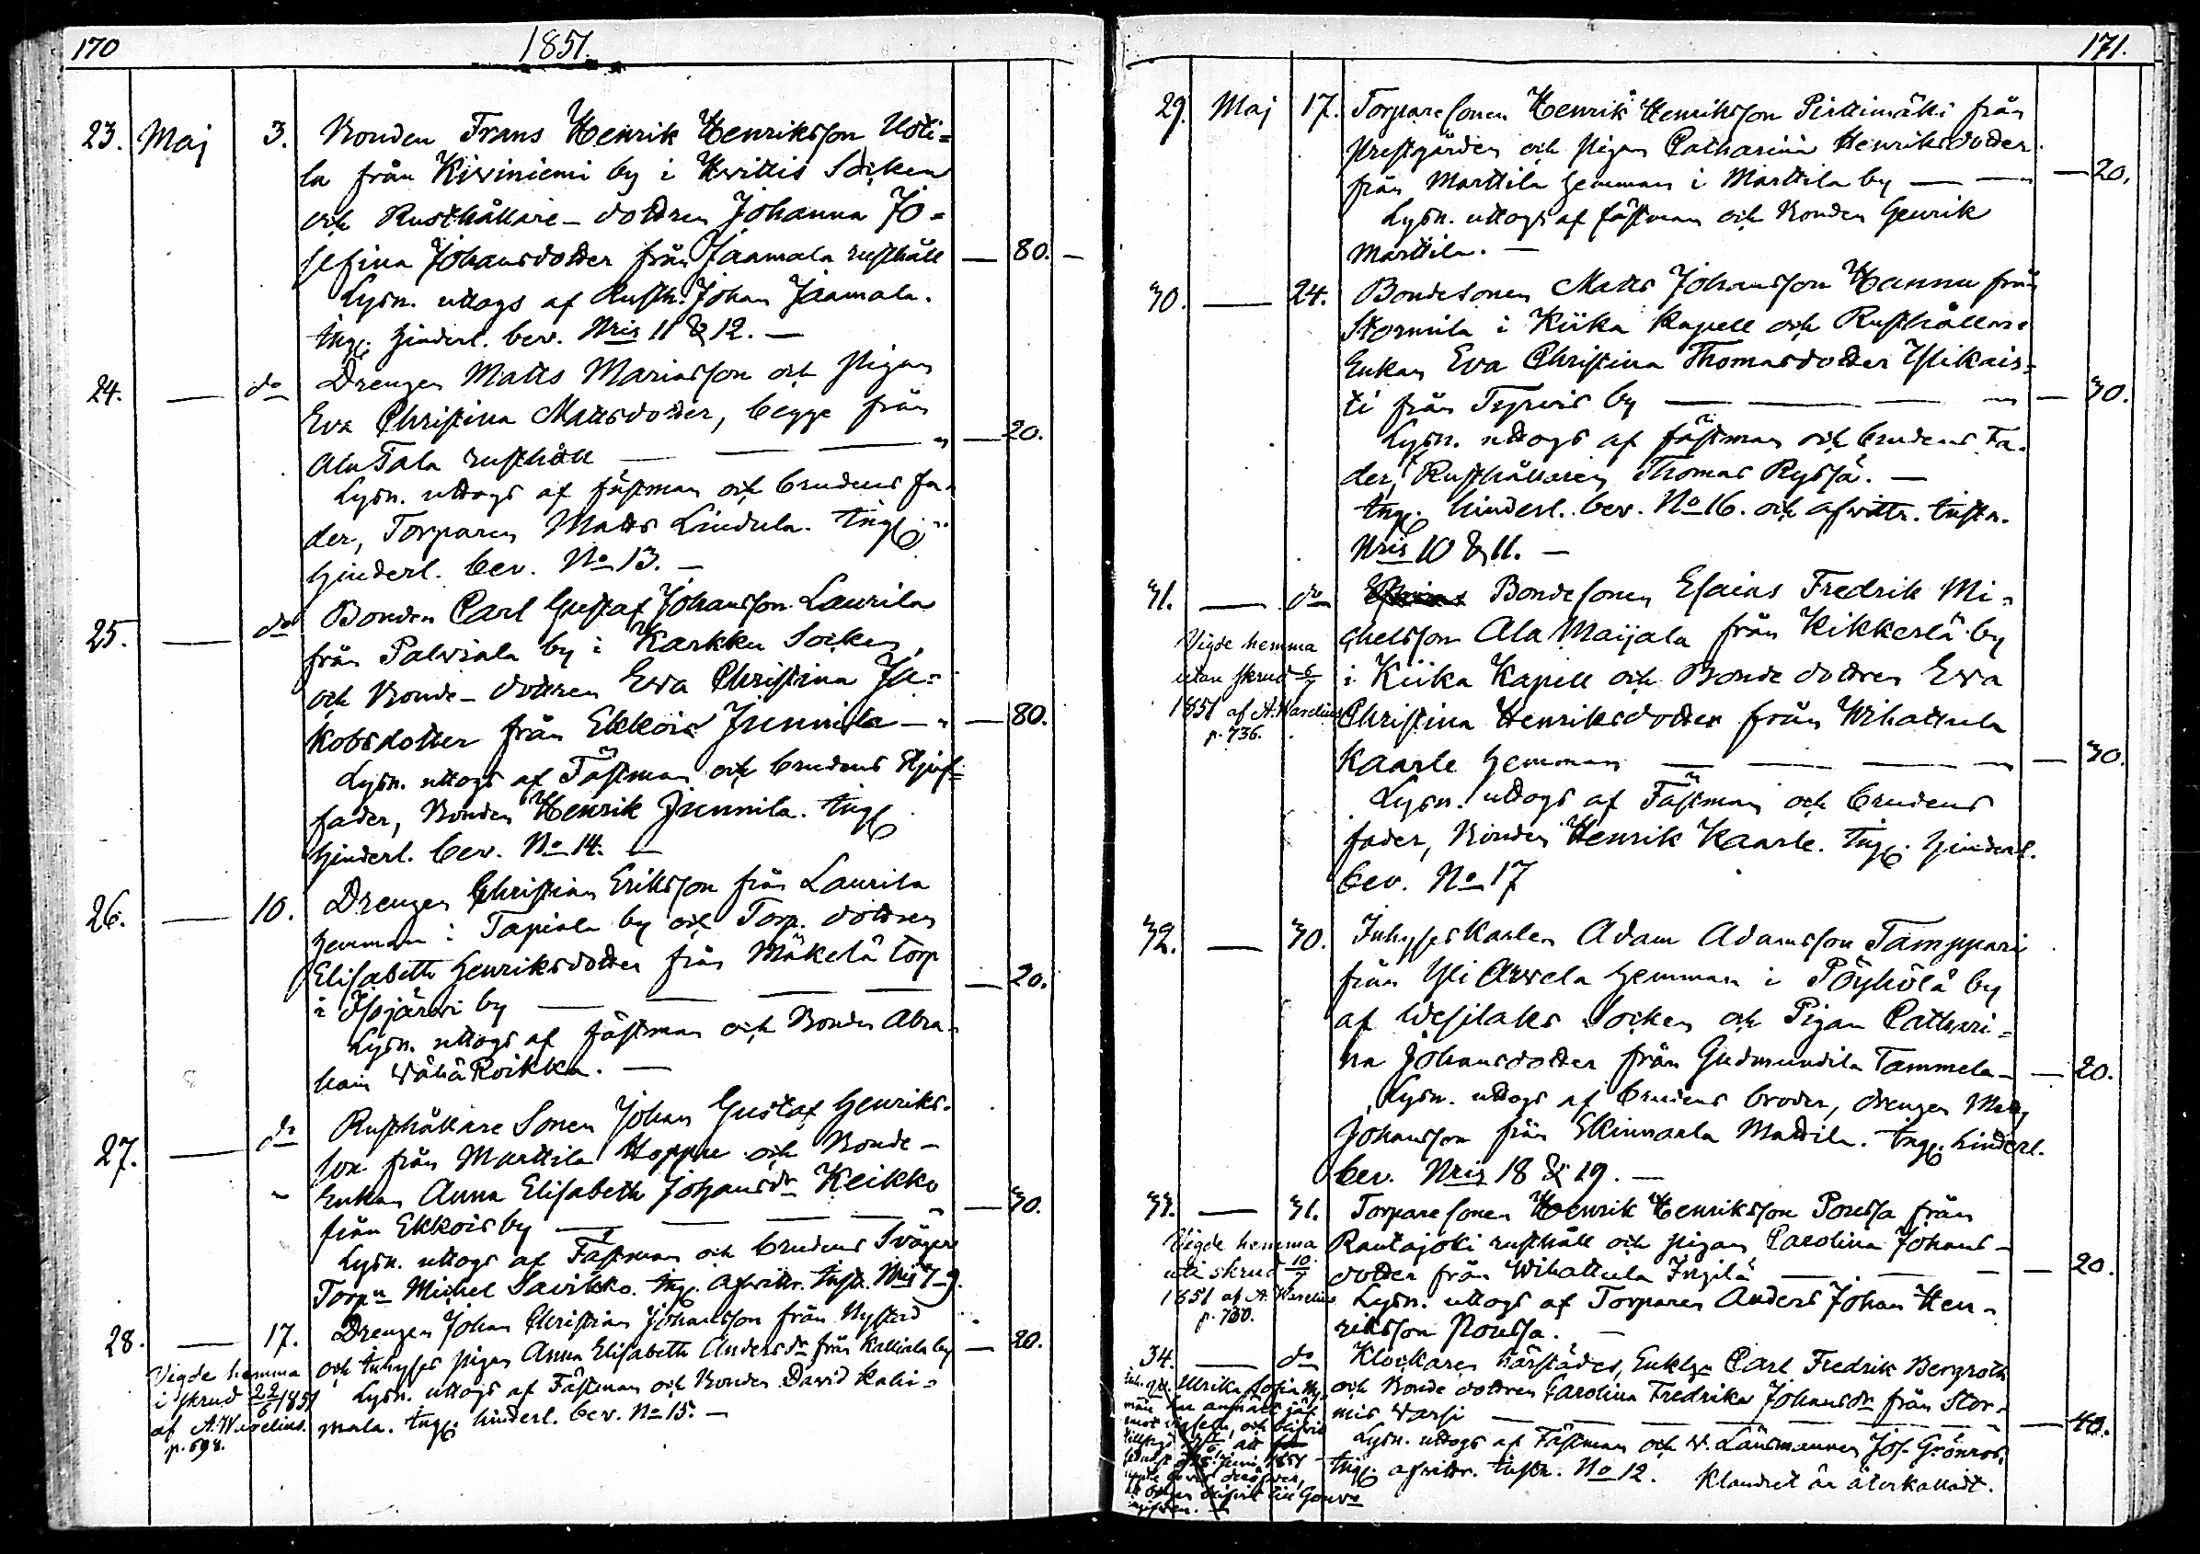 170
1851.
23. Maj 3. Bonden Frans Henrik Henriksson Uoti=
la från Kiviniemi by i Hvittis Socken
och Rusthållare-dottren Johanna Jo=
sefina Johansdotter från Jaamala rusthåll — 80. —
Lysn. uttogs af Rusth. Johan Jaamala.
Ing. hinderl. bev. Nris 11 & 12. —
24. — do Drengen Matts Mariasson och Pigan
Eva Christina Mattsdotter, begge från
AlaTala rusthåll — — — " — 20.
Lysn. uttogs af fästman och brudens fa-
der, Torparen Matts Lindula. Ing.
hinderl. bev. No 13. —
25. — do Bonden Carl Gustaf Johansson Laurila
från Palviala by i Karkku Socken,
och Bonde-dottren Eva Christina Ja=
kobsdotter från Ekkois Junnila — " — 80.
Lysn. uttogs af Fästman och brudens Styf=
fader, Bonden Henrik Junnila. Ing.
hinderl. bev. No 14. —
26. — 10. Drengen Christian Eriksson från Laurila
hemman i Tapiola by och Torp. dottren
Elisabeth Henriksdotter från Mäkelä torp
i Isojärvi by — — — — — 20.
Lysn. uttogs af fästman och Bonden Abra-
ham Vähä Roikka. —
27. — do Rusthållare Sonen Johan Gustaf Henriks-
son från Marttila Hoppu och Bonde-
Enkan Anna Elisabeth Johansdr Keikko
från Ekkois by — — — " — 30.
Lysn. uttogs af Fästman och brudens Svåger
Torpn Michel Savikko. Ing. afvittr. instr. Nris 7-9.
28. — 17. Drengen Johan Christian Johansson från Nystad
och inhyses pigan Anna Elisabeth Andersdr från Kallialaby — 20.
Lysn. uttogs af Fästman och Bonden David Kahi=
mala. Ing. hinderl. bev. No 15. —
Vigde hemma
i skrud 22/6 1851
af A. Warelius.
p. 698.
171.
29. Maj 17. Torparesonen Henrik Henriksson Pirttimäki från
Prestgården och Pigan Catharina Henriksdotter
från Marttila hemman i Marttila by — — — 20.
Lysn. uttogs af fästman och Bonden Henrik
Marttila. —
30. — 24. Bondesonen Matts Johansson Hannu från
Stormila i Kiika Kapell och Rusthållare
Enkan Eva Christina Thomasdotter Ylikais=
ti från Tyrvis by — — — " — 30.
Lysn. uttogs af fästman och brudens Fa-
der, Rusthållaren Thomas Ryssä. —
Ing. hinderl. bev. No 16. och afvittr. instr.
Nris 10 & 11. —
31. — do Bondesonen Esaias Fredrik Mi=
chelsson Ala Maijala från Kikkerlä by
i Kiika Kapell och Bonde dottren Eva
Christina Henriksdotter från Wihattula
Kaarle hemman — — — " — 30.
Lysn. uttogs af Fästman och brudens
fader, Bonden Henrik Kaarle. Ing. hinderl.
bev. No 17
Vigde hemma
utan skrud 6/7
1851 af A. Warelius
p. 736.
32. — 30. Inhyseskarlen Adam Adamsson Tamppari
från Yli Arvela hemman i Pöyhölä by
af Wesilaks Socken och Pigan Cathari=
na Johansdotter från Gudmundila Tammela — — 20.
Lysn. uttogs af brudens broder, drengen Matts
Johansson från Ekinmaala Mattila. Ing. hinderl.
bev. Nris 18 & 19. —
33. — 31. Torparesonen Henrik Henriksson Poussa från
Rautajoki rusthåll och Pigan Carolina Johans-
dotter från Wihattula Ingilä — — — 20.
Lysn. uttogs af Torparen Anders Johan Hen-
riksson Poussa. —
Vigde hemma
uti skrud 10/7
1851 af A. Warelius
p. 730.
34. — do Klockaren härstädes, Enkl. Carl Fredrik Bergroth
och Bonde dottren Carolina Fredrika Johansdr från Stor-
mis Warsi — — — — 40.
Lysn. uttogs af Fästman och V. Länsmannen Jos. Grönros.
Ing. afvittr. instr. No 12. Klandret är återkalladt.
Ulrika Sofia
har anmält jäf